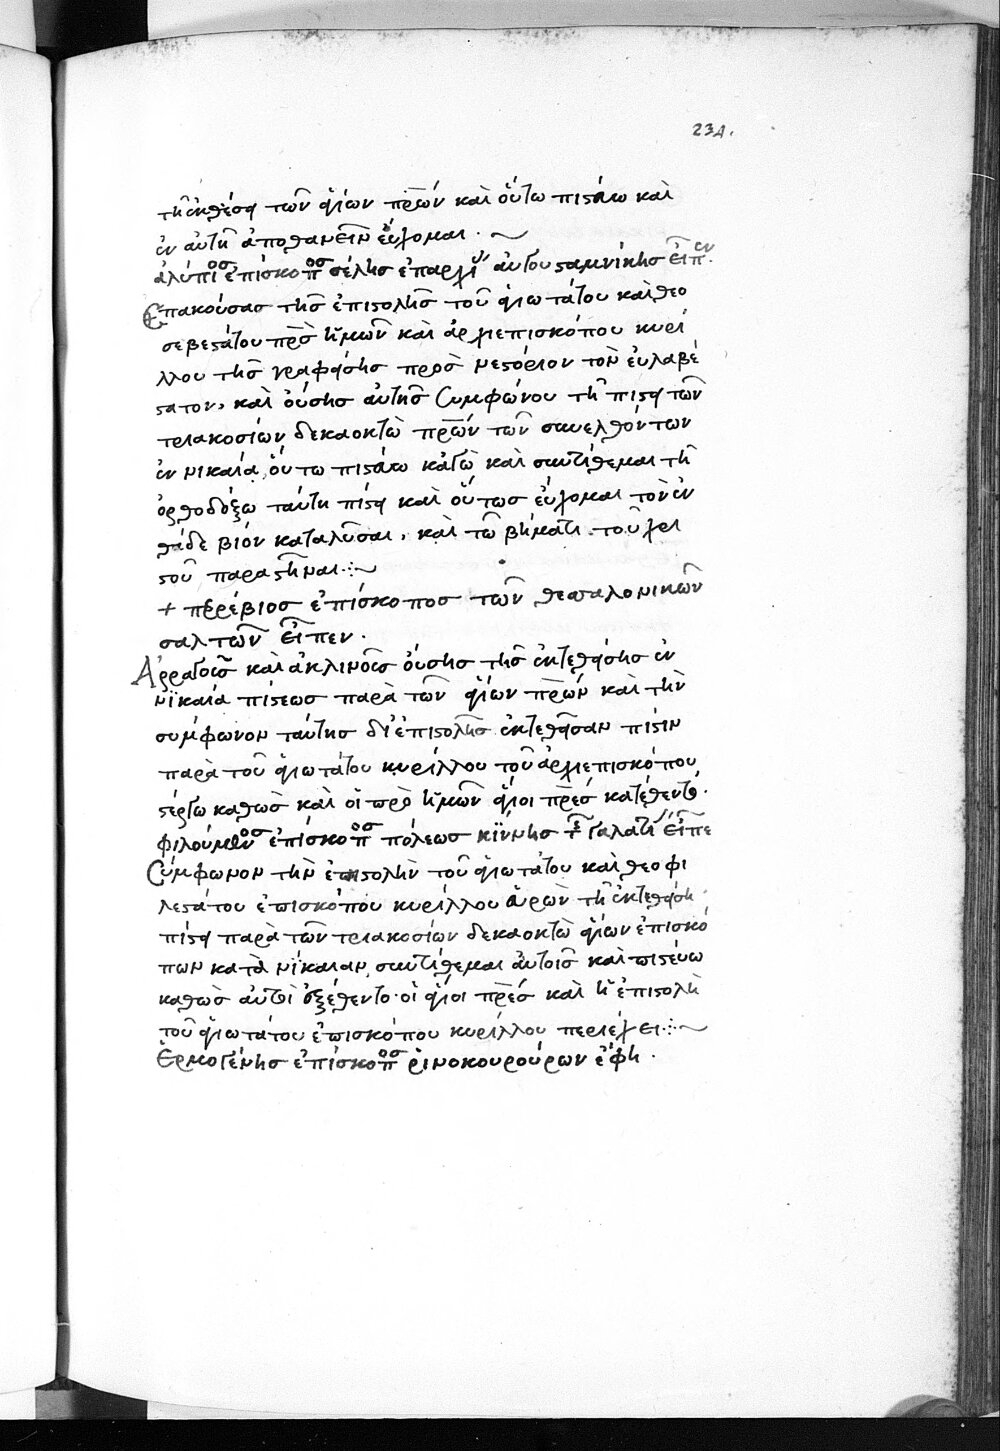 234.
τῇ ἐκθέσει τῶν ἁγίων πρων καὶ οὕτω πιστεύω καὶ
ἐν αὐτῇ ἀποθανεῖν εὔχομαι.
ἀλύπιος ἐπίσκοπος σέλης ἐπαρχί αὐγουσταμνίκης εἶπεν.
Ἐπακούσας τῆς ἐπιστολῆς τοῦ ἁγιωτάτου καὶ θεο
σεβεστάτου πρς ἡμῶν καὶ ἀρχιεπισκόπου κυρί
λλου τῆς γραφείσης πρὸς νεστόριον τὸν εὐλαβέ
στατον, καὶ οὔσης αὐτῆς συμφώνου τῇ πίστει τῶν
τριακοσίων δεκαοκτὼ πρων τῶν συνελθόντων
ἐν νικαία, οὕτω πιστεύω κἀγὼ καὶ συντίθεμαι τῇ
ὀρθοδόξω ταύτη πίστει καὶ οὕτως εὔχομαι τὸν ἐν
θάδε βίον καταλῦσαι, καὶ τῶ βήματι τοῦ χρι
στοῦ παραστῆναι:
+ περέβιος ἐπίσκοπος τῶν θεσσαλονικῶν
σαλτῶν εἶπεν.
Ἀρραγοῦς καὶ ἀκλινοῦς οὔσης τῆς ἐκτεθείσης ἐν
νϊκαία πίστεως παρὰ τῶν ἁγίων πρων καὶ τὴν
σύμφωνον ταύτης δι' ἐπιστολῆς ἐκτεθεῖσαν πίστιν
παρὰ τοῦ ἁγιωτάτου κυρίλλου τοῦ ἀρχιεπισκόπου,
στέργω καθὼς καὶ οἱ πρὸ ἡμῶν ἅγιοι πρες κατέθεντο.
φιλούμενος ἐπίσκοπος πόλεως κϊννης τῆς γαλατί εἶπε
Σύμφωνον τὴν ἐπιστολὴν τοῦ ἁγιωτάτου καὶ θεοφι
λεστάτου ἐπισκόπου κυρίλλου εὑρὼν τῇ ἐκτεθείση
πίστει παρὰ τῶν τριακοσίων δεκαοκτὼ ἁγίων ἐπισκό
πων κατὰ νίκαιαν, συντίθεμαι αὐτοῖς καὶ πιστεύω
καθὼς αὐτοὶ ἐξέθεντο οἱ ἅγιοι πρες καὶ ἡ ἐπιστολὴ
τοῦ ἁγιωτάτου ἐπισκόπου κυρίλλου περιέχει:
Ἑρμογένης ἐπίσκοπος ῥινοκουρούρων ἔφη.